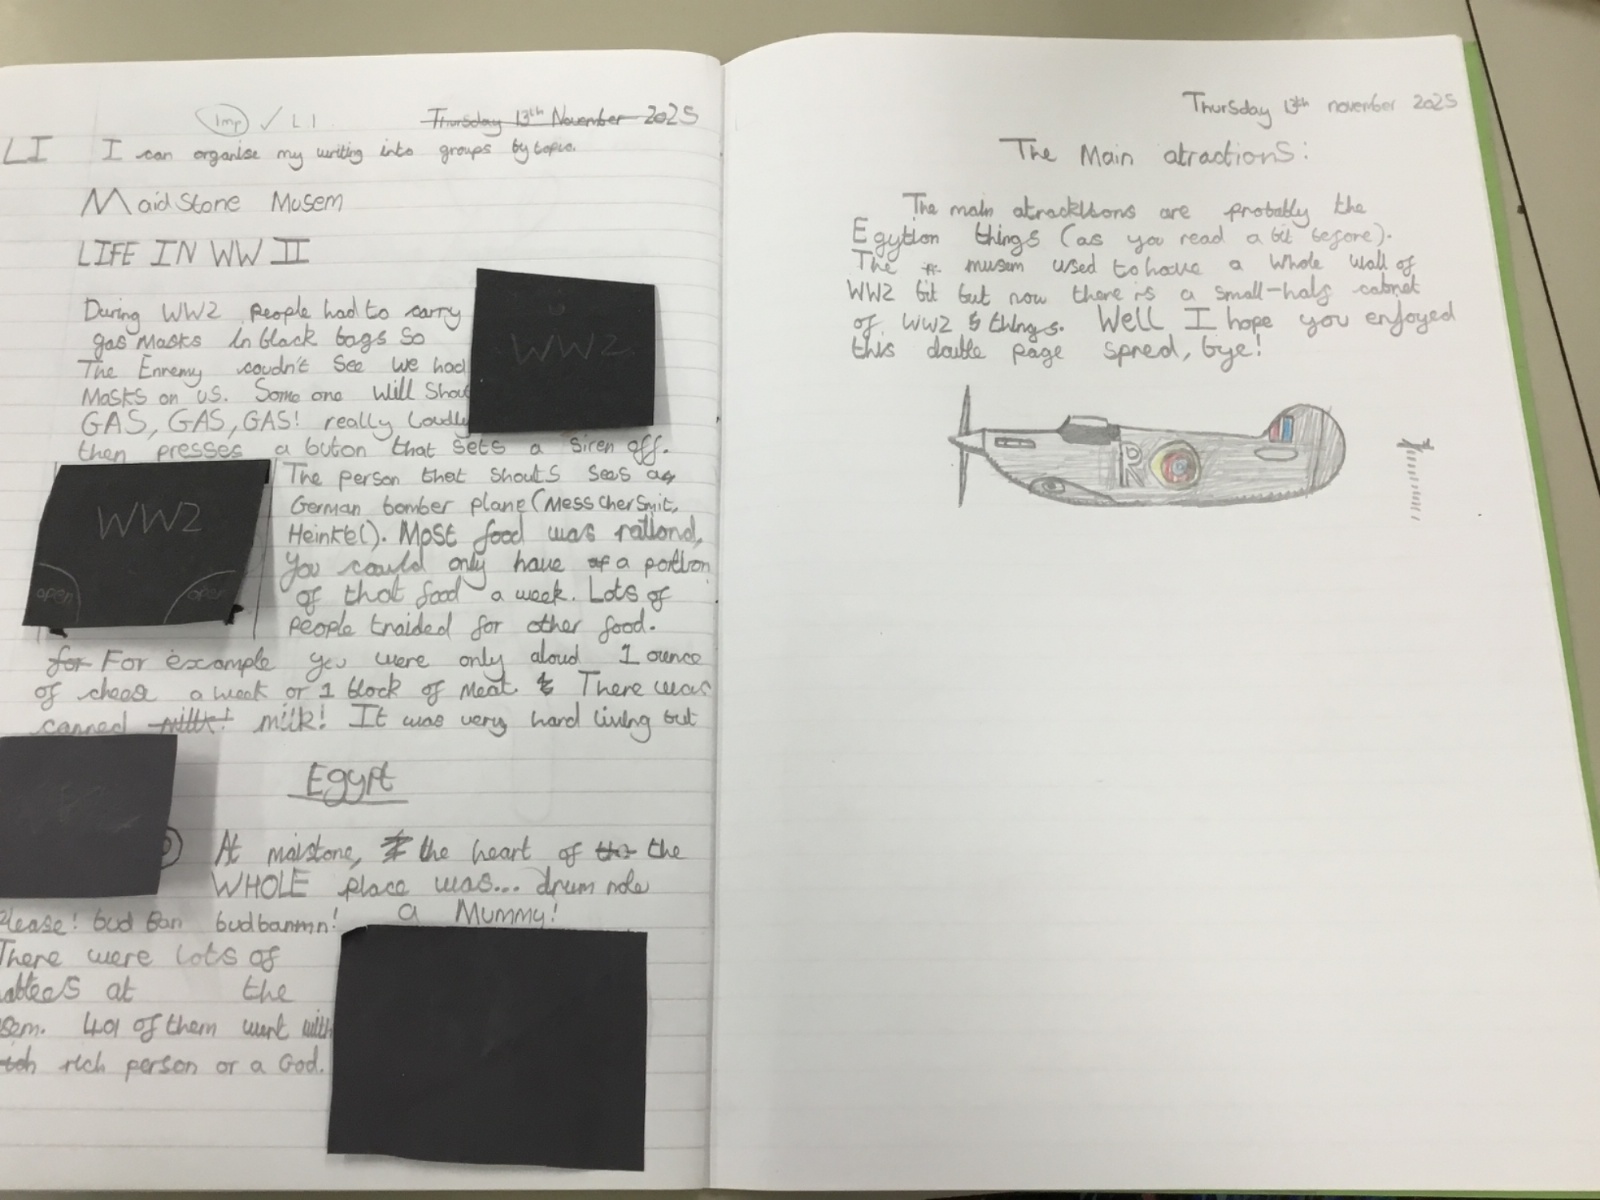 Imp ✓ LI
Thursday 13th November 2025
LI I can organise my writing into groups by topic.
Maidstone Musem
LIFE IN WW II
During WW2 people had to carry
gas Masks in black bags so
The Enremy coudn't see we had
Masks on us. Some one Will Shou
GAS, GAS, GAS! really Loudly
then presses a buton that sets a siren off.
WW2
WW2
open
open
The person that shouts sees a
German bomber plane (Messchersmit,
Heinkel). Most food was rationd,
You could only have a portion
of that food a week. Lots of
People traided for other food.
for For example you were only aloud 1 ounce
of chease a week or 1 block of meat. There was
canned milk! milk! It was very hard living but
Egypt
At maistone, the heart of the the
WHOLE place was... drum role
Please! bud Ban budbanmn! a Mummy!
There were lots of
at the
sem. 401 of them went with
rich person or a God.
Thursday 13th november 2025
The Main atractions:
The main atracktions are probably the
Egytion things (as you read a bit before).
The musem used to have a whole wall of
WW2 bit but now there is a small-half cabnet
of WW2 things. Well I hope you enjoyed
this double page spred, bye!